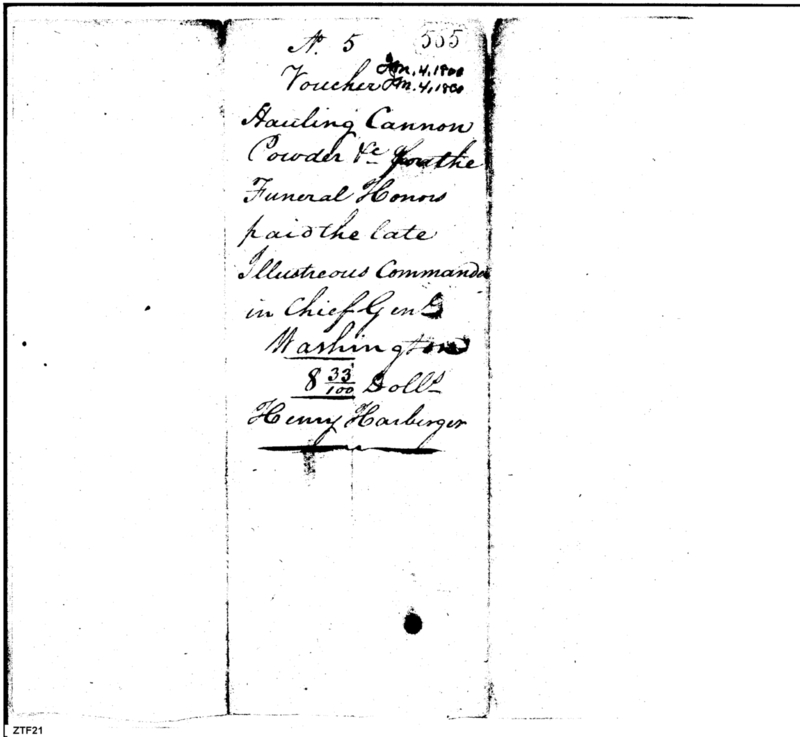 No. 5 555
Jan. 4, 1800
Voucher Jan. 4, 1800
Hauling Cannon
Powder &c for the
Funeral Honors
paid the late
Illustreous Commander
in Chief Genl
Washington
8 33/100 Dolls
Henry Harberger
ZTF21